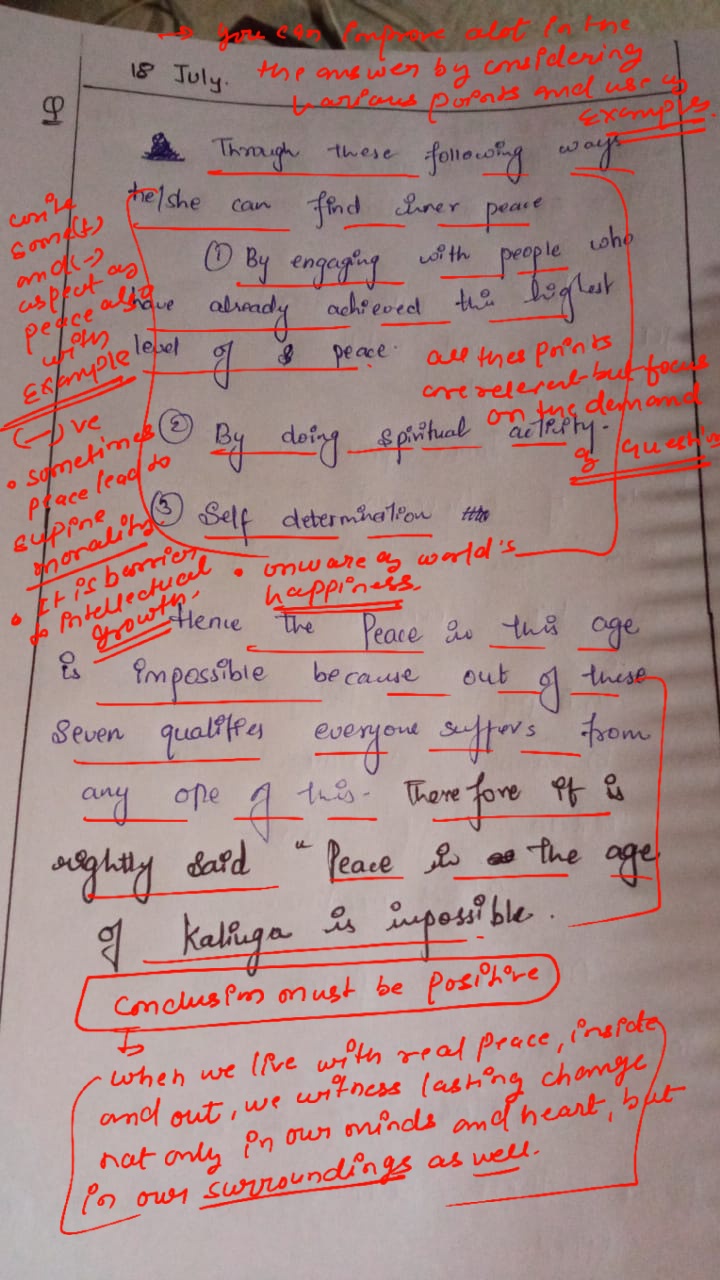 → you can improve alot in the
the answer by considering
various points and use of
Examples.
18 July.
Q
Through these following ways
he/she can find inner peace
① By engaging with people who
have already achieved this highest
level of peace.
② By doing spiritual activity.
③ Self determination
write
some(+)
and(-)
aspect of
peace also
with
Example
all thes points
are relevent but focus
on the demand
of question
(-)ve
• sometimes
peace lead to
supine
morality
• It is barrier
to intellectual
growth.
• onware of world's
happiness.
Hence the Peace in this age
is impossible because out of these
Seven qualities everyone suffers from
any one of this. Therefore it is
rightly said "Peace in the age
of Kaliuga is impossible.
Conclusion must be positive
when we live with real peace, inside
and out, we witness lasting change
not only in our minds and heart, but
in our surroundings as well.